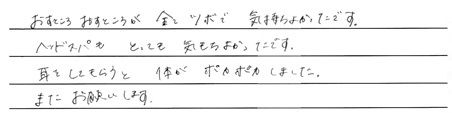 おすところ おすところが 全て ツボで 気持ちよかったです。
ヘッドスパも とっても 気もちよかったです。
耳をしてもらうと 体が ポカポカしました。
また お願いします。